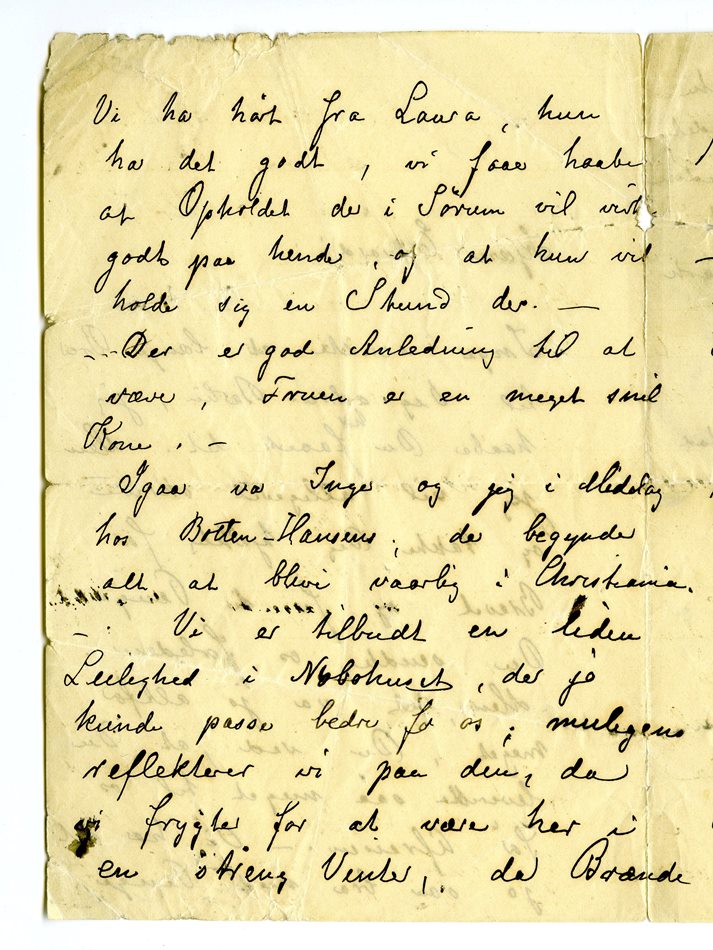 Vi ha hørt fra Laura, hun
ha det godt, vi faae haabe
at Opholdet der i Sörum vil virke
godt paa hende, og at hun vil
holde sig en Stund der. —
— Der er god Anledning til at
væve, Fruen er en meget snil
Kone. —
Igaar va Inger og jeg i Middag
hos Botten-Hansens, de begynder
alt at blive vaarlig i Christiania.
— Vi er tilbudt en liden
Leilighed i Nabohuset, der jo
kunde passe bedre for os, muligens
reflekterer vi paa den, da
vi frygter for at være her i
en streng Vinter, da Brænde